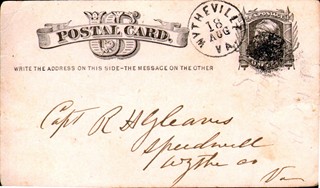 US
POSTAL CARD.
WYTHEVILLE
18
AUG
VA.
WRITE THE ADDRESS ON THIS SIDE-THE MESSAGE ON THE OTHER
Capt R H Gleaves
Speedwell
Wythe co
Va